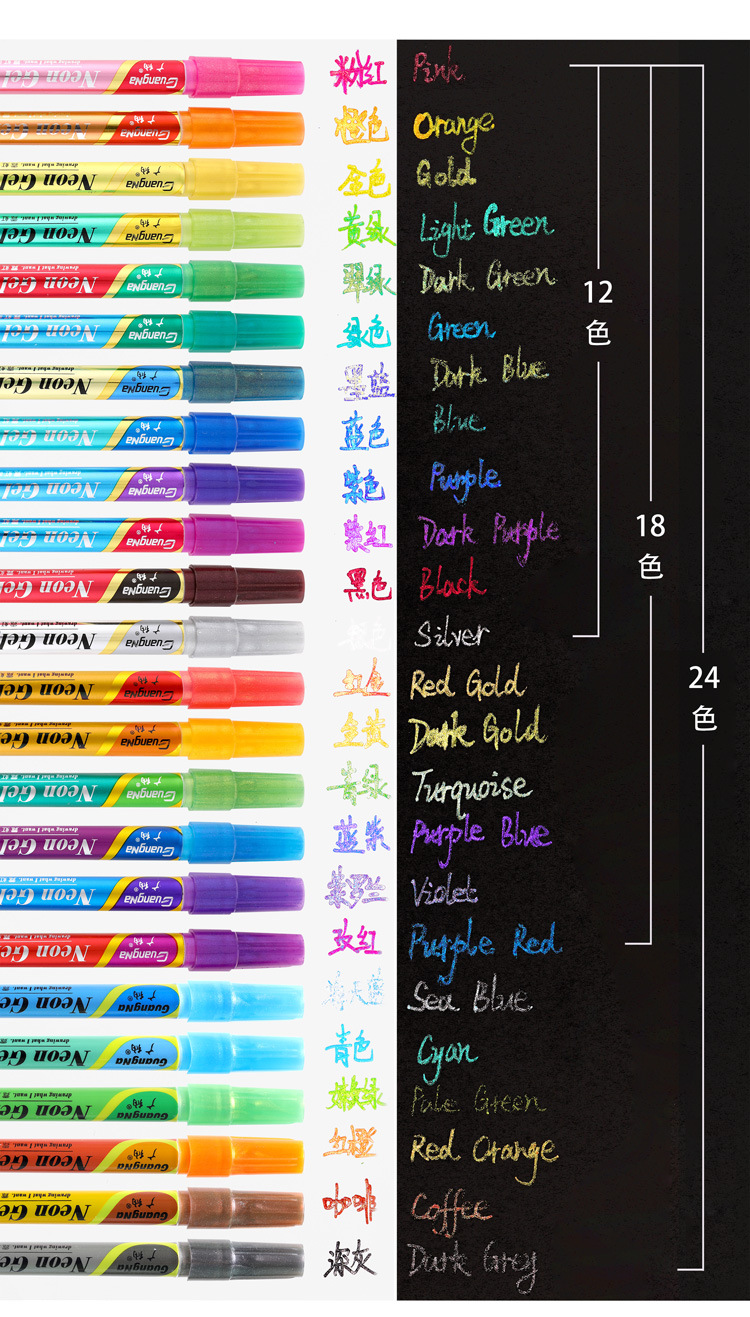 粉红 Pink
橙色 Orange
金色 Gold
黄绿 Light Green
翠绿 Dark Green
绿色 Green
黑蓝 Dark Blue
蓝色 Blue
紫色 Purple
紫红 Dark Purple
黑色 Black
银色 Silver
红金 Red Gold
金黄 Dark Gold
青绿 Turquoise
蓝紫 Purple Blue
紫罗兰 Violet
玫红 Purple Red
海天蓝 Sea Blue
青色 Cyan
嫩绿 Pale Green
红橙 Red Orange
咖啡 Coffee
深灰 Dark Grey
12
色
18
色
24
色
Neon Gel
drawing what I want.
GuangNa
广纳®